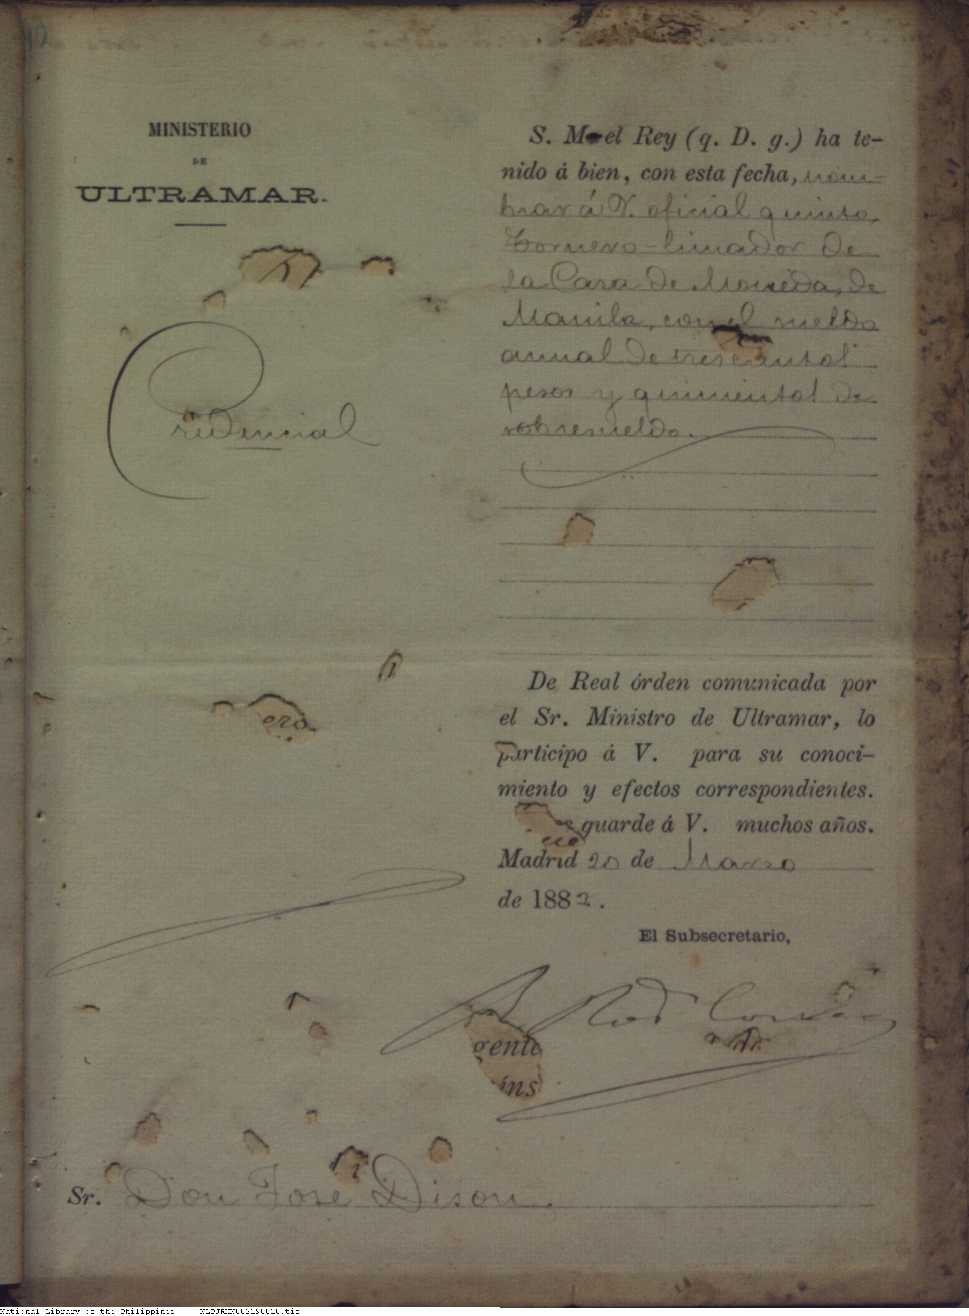 MINISTERIO
DE
ULTRAMAR.
Credencial
S. M. el Rey (q. D. g.) ha te-
nido á bien, con esta fecha, nom-
brar á V. oficial quinto,
Tornero-limador de
la Casa de Moneda, de
Manila, con el sueldo
anual de trescientos
pesos y quinientos de
sobresueldo.
De Real órden comunicada por
el Sr. Ministro de Ultramar, lo
participo á V. para su conoci-
miento y efectos correspondientes.
guarde á V. muchos años.
Madrid 20 de Marzo
de 1882.
El Subsecretario,
Sr. Don Jose Dison.
National Library of the Philippines